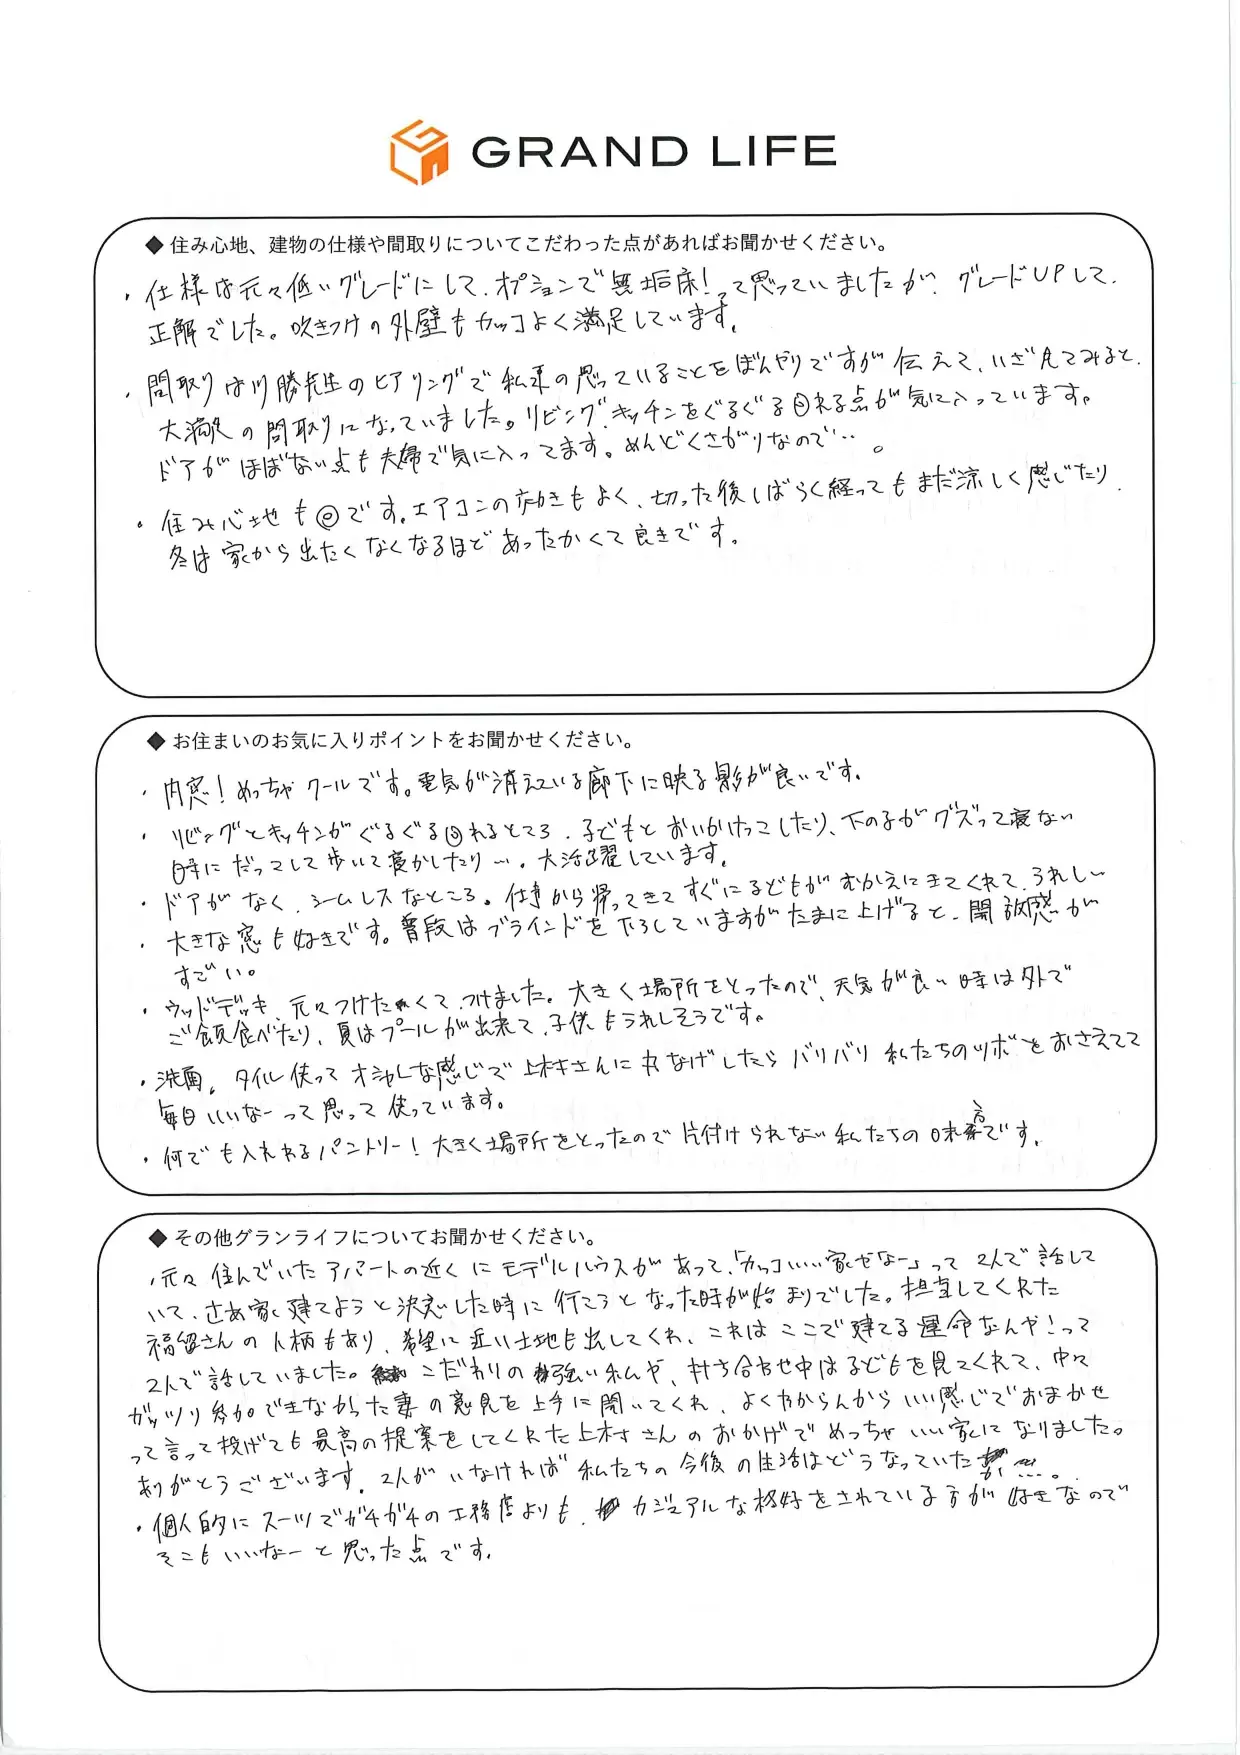 GRAND LIFE
◆ 住み心地、建物の仕様や間取りについてこだわった点があればお聞かせください。
・仕様は元々低いグレードにして、オプションで無垢床!って思っていましたが、グレードUPして、
正解でした。吹きつけの外壁もカッコよく満足しています。
・間取りは川勝先生のヒアリングで私達の思っていることをぼんやりですが伝えて、いざ見てみると、
大満足の間取りになっていました。リビング、キッチンをぐるぐる回れる点が気に入っています。
ドアがほぼない点も夫婦で気に入ってます。めんどくさがりなので…。
・住み心地も◎です。エアコンの効きもよく、切った後しばらく経ってもまだ涼しく感じたり、
冬は家から出たくなくなるほどあったかくて良きです。
◆ お住まいのお気に入りポイントをお聞かせください。
・内窓!めっちゃクールです。電気が消えている廊下に映る影が良いです。
・リビングとキッチンがぐるぐる回れるところ、子どもとおいかけっこしたり、下の子がグズって寝ない
時にだっこして歩いて寝かしたり…、大活躍しています。
・ドアがなく、シームレスなところ。仕事から帰ってきてすぐに子どもがむかえにきてくれて、うれしい
・大きな窓も好きです。普段はブラインドを下ろしていますがたまに上げると、開放感が
すごい。
・ウッドデッキ、元々つけたくて、つけました。大きく場所をとったので、天気が良い時は外で
ご飯食べたり、夏はプールが出来て、子供もうれしそうです。
・洗面。タイル使ってオシャレな感じで上村さんに丸なげしたらバリバリ私たちのツボをおさえてて
毎日いいなーって思って使っています。
・何でも入れれるパントリー!大きく場所をとったので片付けられない私たちの味方です。
◆ その他グランライフについてお聞かせください。
・元々住んでいたアパートの近くにモデルハウスがあって、「カッコいい家やなー」って2人で話して
いて、さあ家建てようと決意した時に行こうとなった時が始まりでした。担当してくれた
福留さんの人柄もあり、希望に近い土地も出してくれ、これはここで建てる運命なんや!って
2人で話していました。こだわりの強い私や、打ち合わせ中は子どもを見てくれて、中々
ガッツリ参加できなかった妻の意見を上手に聞いてくれ、よくわからんからいい感じでおまかせ
って言って投げても最高の提案をしてくれた上村さんのおかげでめっちゃいい家になりました。
ありがとうございます。2人がいなければ私たちの今後の生活はどうなっていたか…。
・個人的にスーツでガチガチの工務店よりも、カジュアルな格好をされている方が好きなので
そこもいいなーと思った点です。